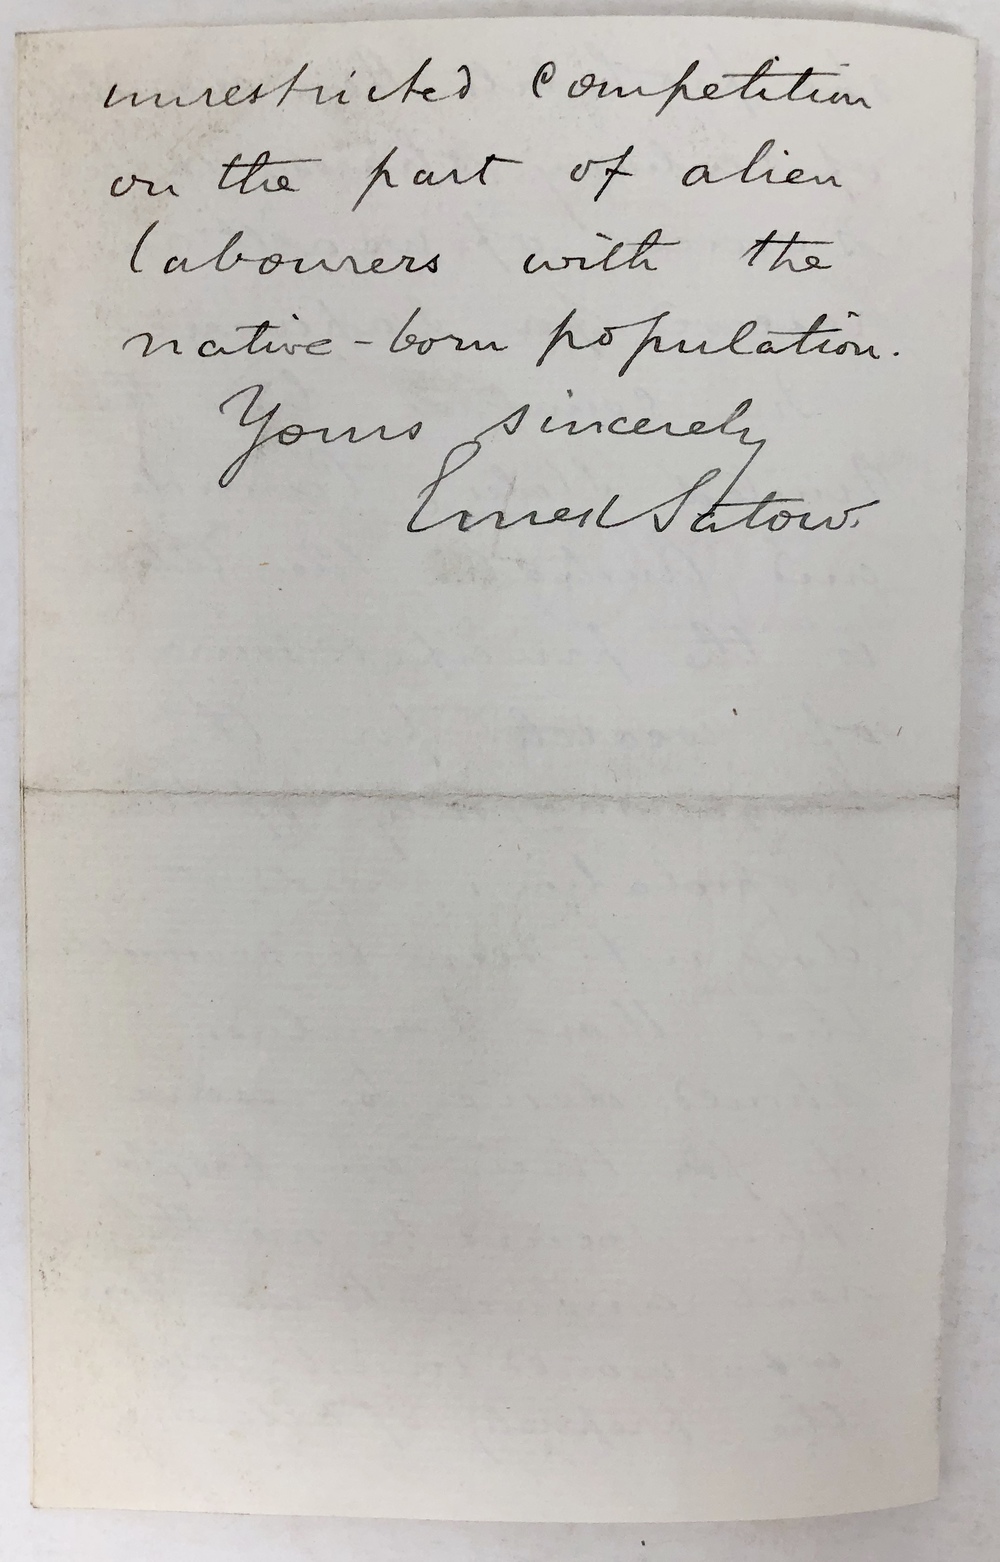 unrestricted competition
on the part of alien
labourers with the
native-born population.
Yours sincerely
Ernest Satow.